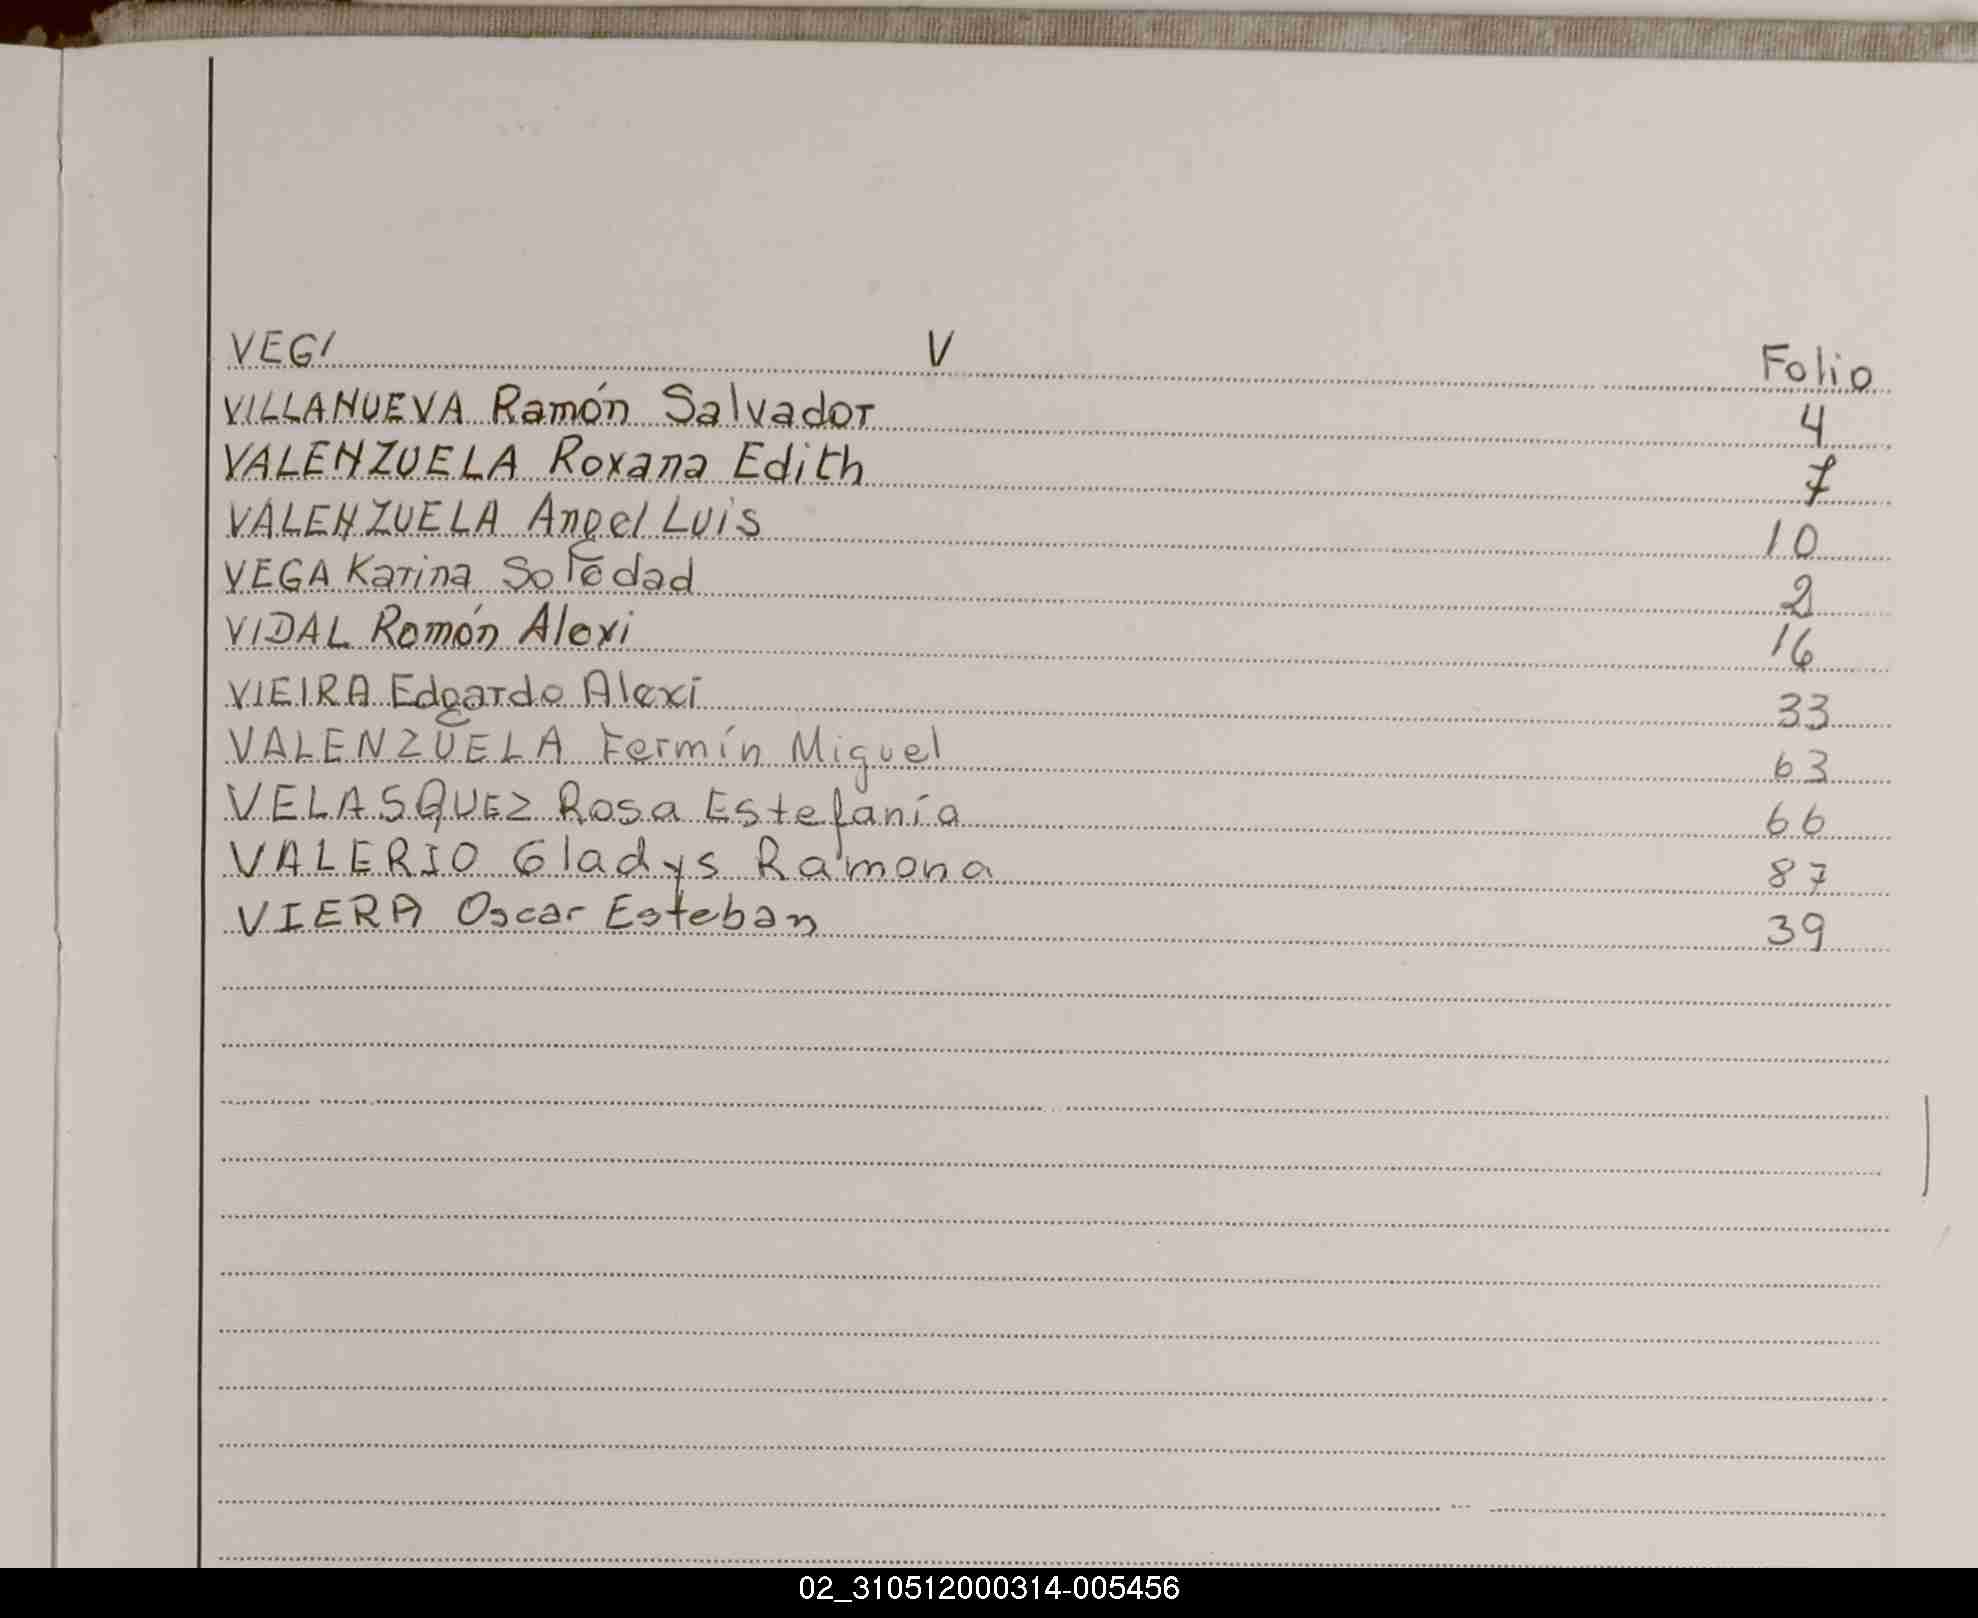 VEG V Folio
VILLANUEVA Ramón Salvador 4
VALENZUELA Roxana Edith 7
VALENZUELA Angel Luis 10
VEGA Karina Soledad 2
VIDAL Ramón Alexi 16
VIEIRA Edgardo Alexi 33
VALENZUELA Fermín Miguel 63
VELASQUEZ Rosa Estefanía 66
VALERIO Gladys Ramona 87
VIERA Oscar Esteban 39
02_310512000314-005456